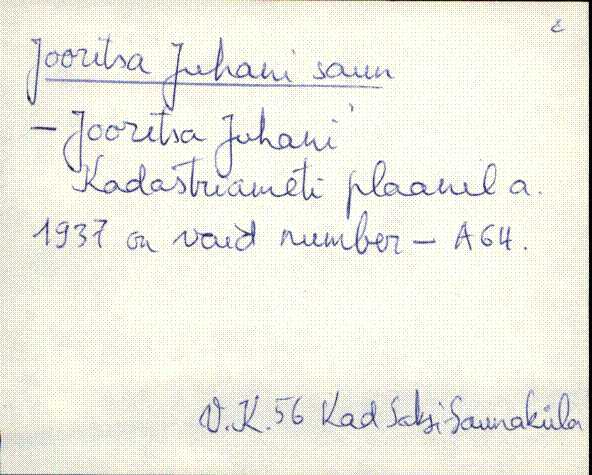 Jooritsa Juhani saun
– Jooritsa Juhani'
Kadastriameti plaanil a.
1937 on vaid number – A64.
V.K.56 Kad Saksi-Saunaküla